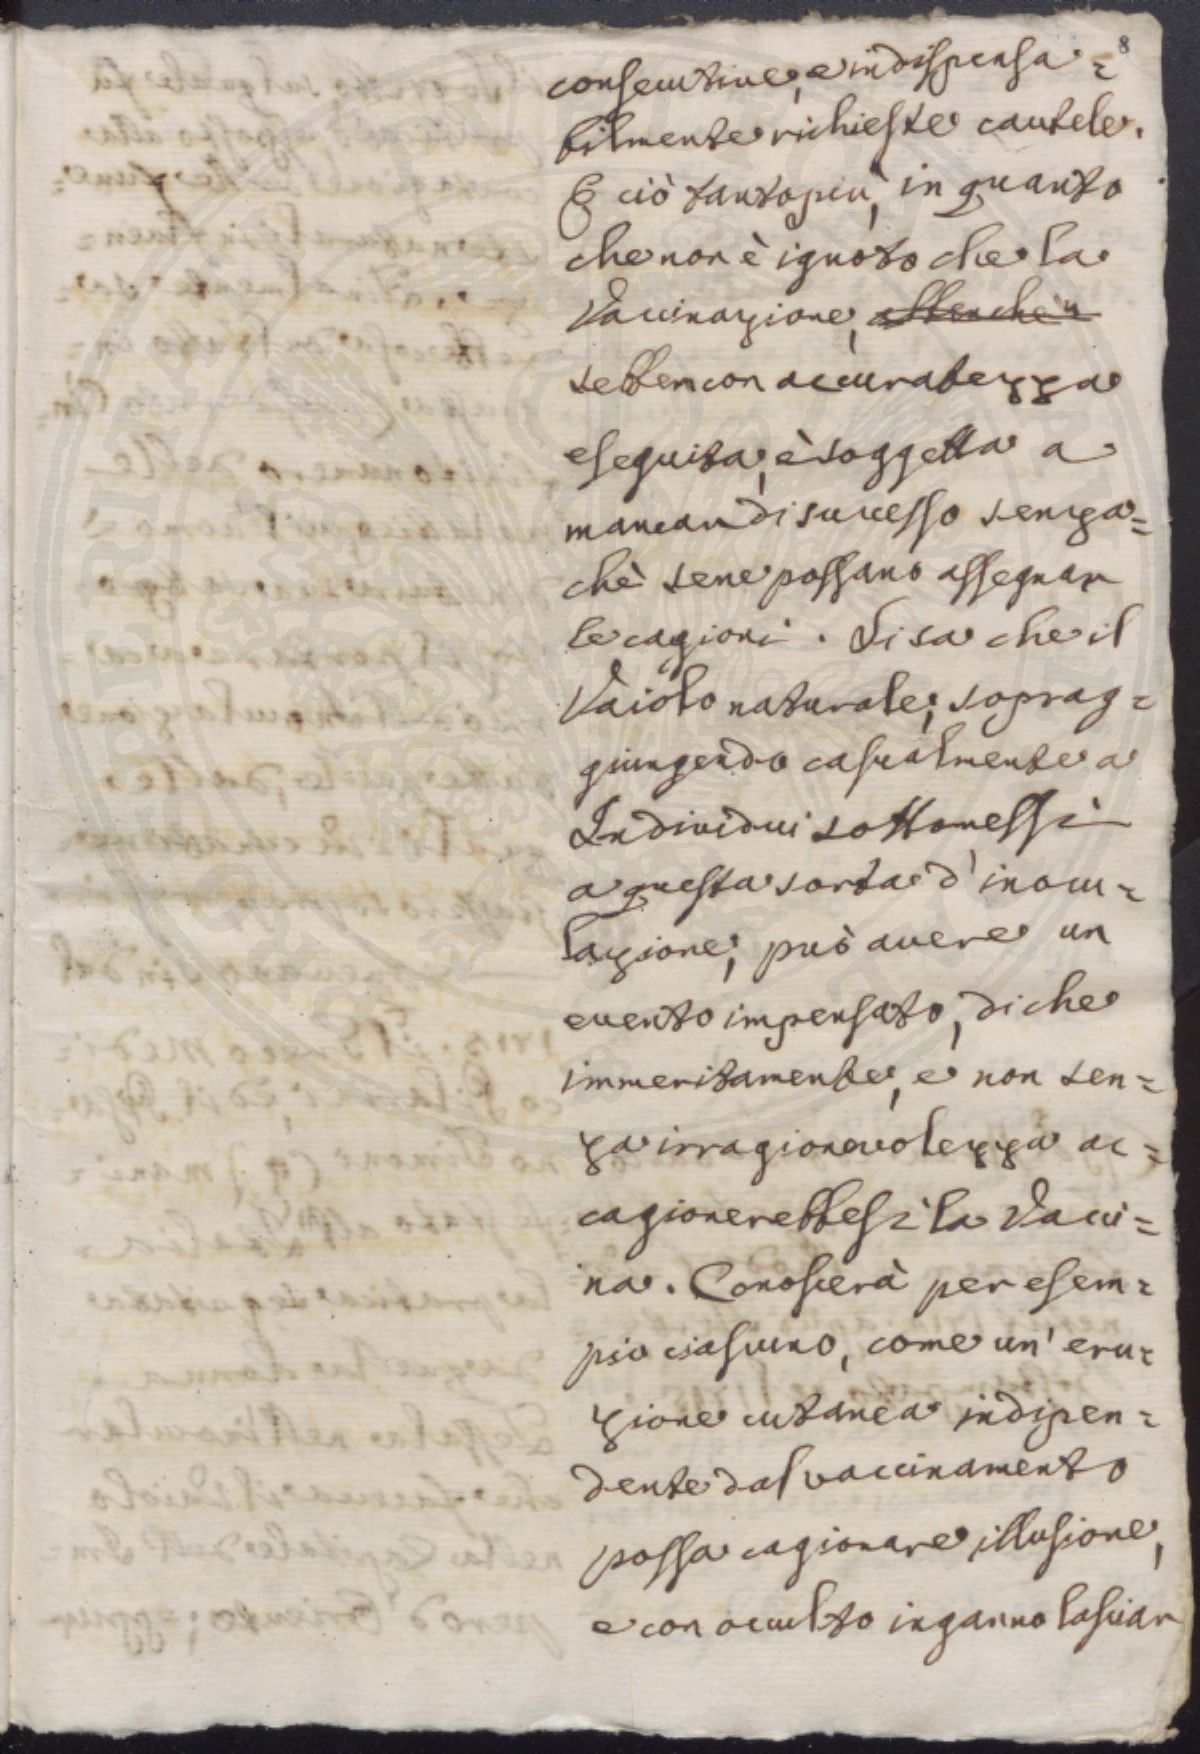 8
consecutive, e indispensa=
bilmente richieste cautele.
E ciò tantopiù, in quanto
che non è ignoto che la
Vaccinazione, abbenchè
sebben con accuratezza
eseguita, è soggetta a
mancar di successo senza=
chè sene possano assegnar
le cagioni. Si sa che il
Vaiolo naturale, soprag=
giungendo casualmente a
Individui sottomessi
a questa sorta d'inocu=
lazione, può avere un
evento impensato, di che
immeritamente, e non sen=
za irragionevolezza ac=
cagionerebbesi la Vacci=
na. Conoscerà per esem=
pio ciascuno, come un' eru=
zione cutanea indipen=
dente dal vaccinamento
possa cagionare illusione,
e con occulto inganno lasciar